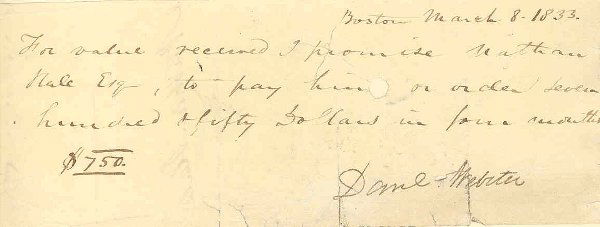 Boston March 8. 1833.
For value received I promise Nathan
Hale Esq, to pay him or order seven
hundred & fifty Dollars in four months
$750.
Danl Webster